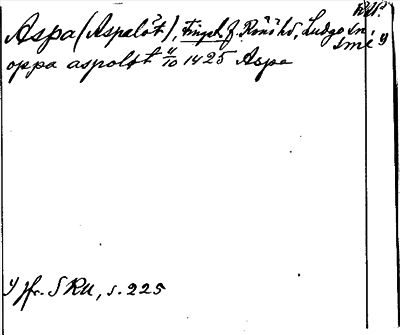 Aspa (Aspelöt), Tingsh. f. Rönö hd, Ludgo sn,
Sml y
oppa aspoløt 4/10 1425 Aspa
y Jfr. SRU, s. 225